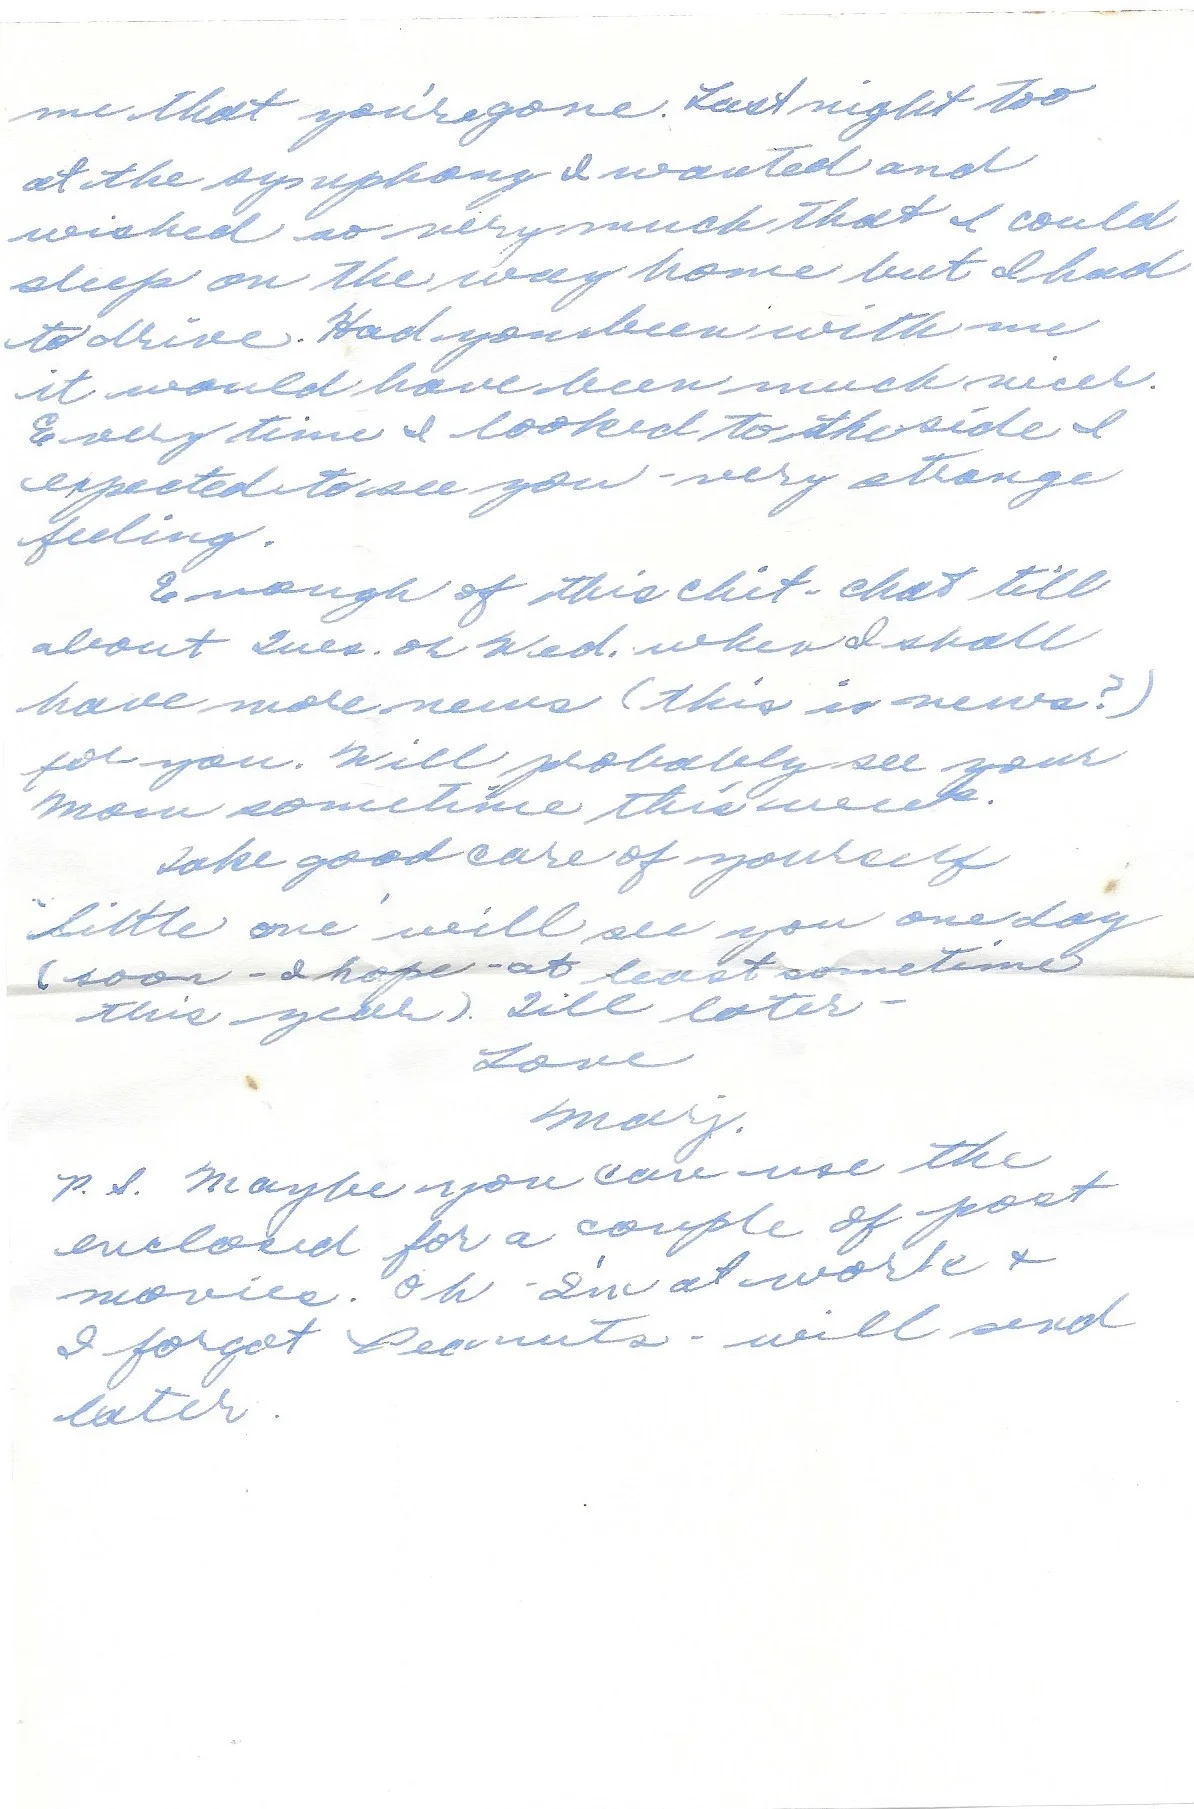 me that you're gone. Last night too
at the symphony I wanted and
wished so very much that I could
sleep on the way home but I had
to drive. Had you been with me
it would have been much nicer.
Every time I looked to the side I
expected to see you - very strange
feeling.
Enough of this chit-chat till
about Tues. or Wed. when I shall
have more news (this is news?)
for you. Will probably see your
Mom sometime this week.
Take good care of yourself
"little one" will see you one day
(soon - I hope - at least sometime
this year). Till later -
Love
Marj.
P.S. Maybe you can use the
enclosed for a couple of post
movies. Oh - I'm at work &
I forgot Peanuts - will send
later.